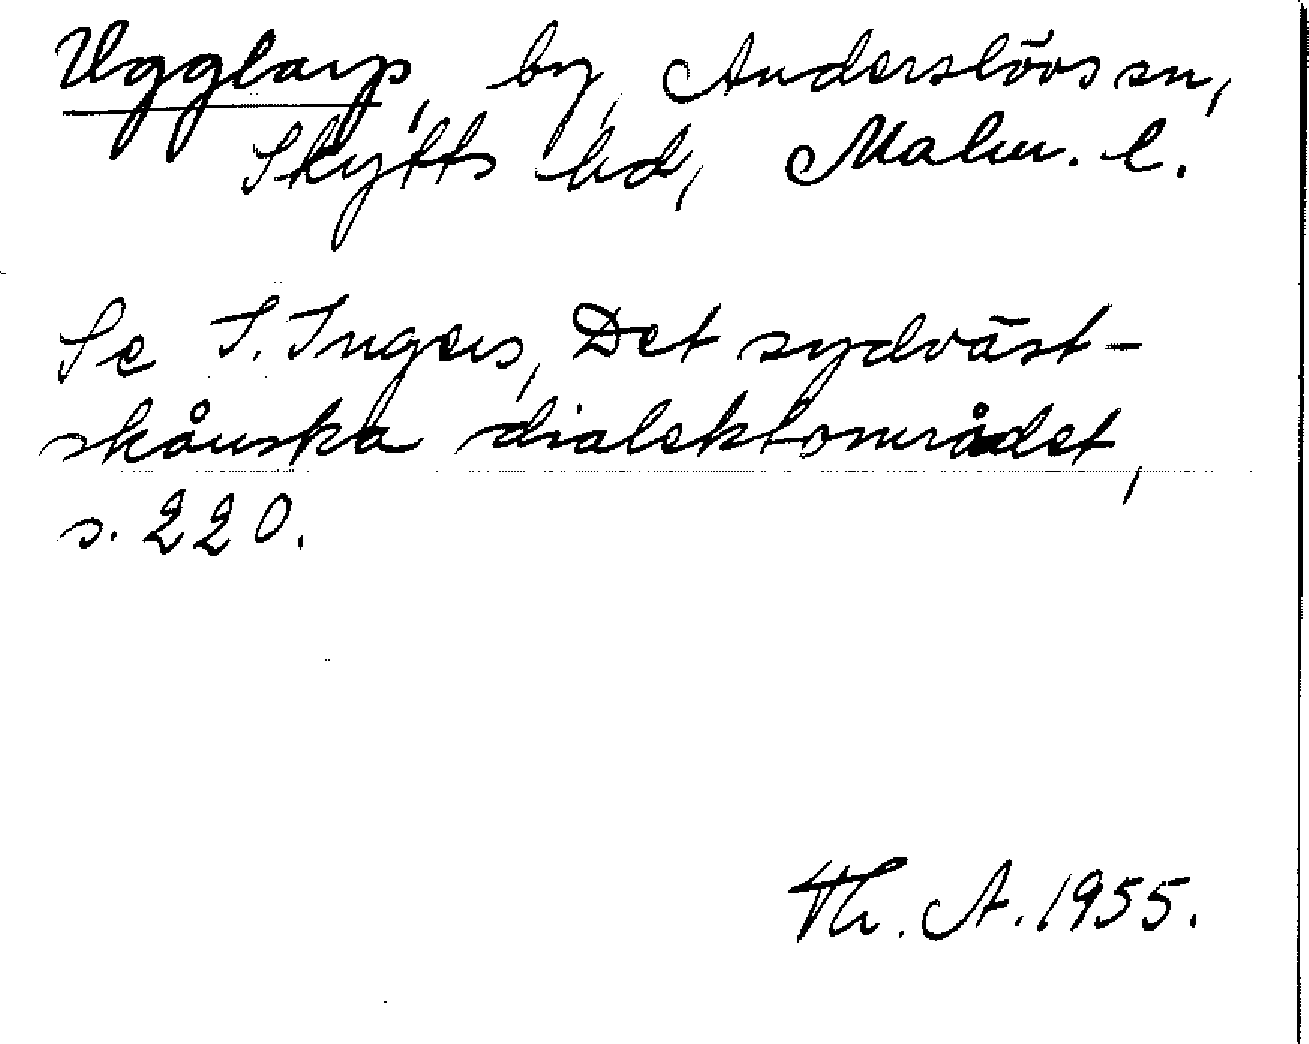 Ugglarp, by, Anderslövs sn,
Skytts hd, Malm. l.
Se I. Ingers, Det sydväst-
skånska dialektområdet,
s. 220.
Th. A. 1955.